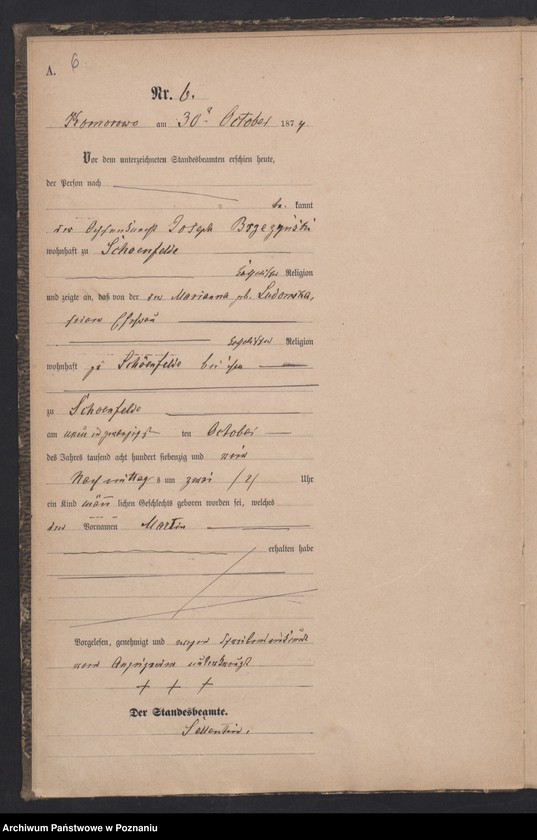 A. 6
Nr. 6.
Komorowo am 30ⁿ October 1874.
Vor dem unterzeichneten Standesbeamten erschien heute,
der Person nach
be kannt
der Ochsenknecht Joseph Brzezynski
wohnhaft zu Schoenfelde
katholischer Religion
und zeigte an, daß von der der Marianna geb. Ludomska,
seiner Ehefrau
katholischer Religion
wohnhaft zu Schöenfelde bei ihm
zu Schoenfelde
am neun und zwanzigst ten October
des Jahres tausend acht hundert siebenzig und vier
Nachmittag s um zwei /2/ Uhr
ein Kind männ lichen Geschlechts geboren worden sei, welches
den Vornamen Martin
erhalten habe
Vorgelesen, genehmigt und wegen
vom Anzeigenden unterkreuzt
+ + +
Der Standesbeamte.
Archiwum Państwowe w Poznaniu